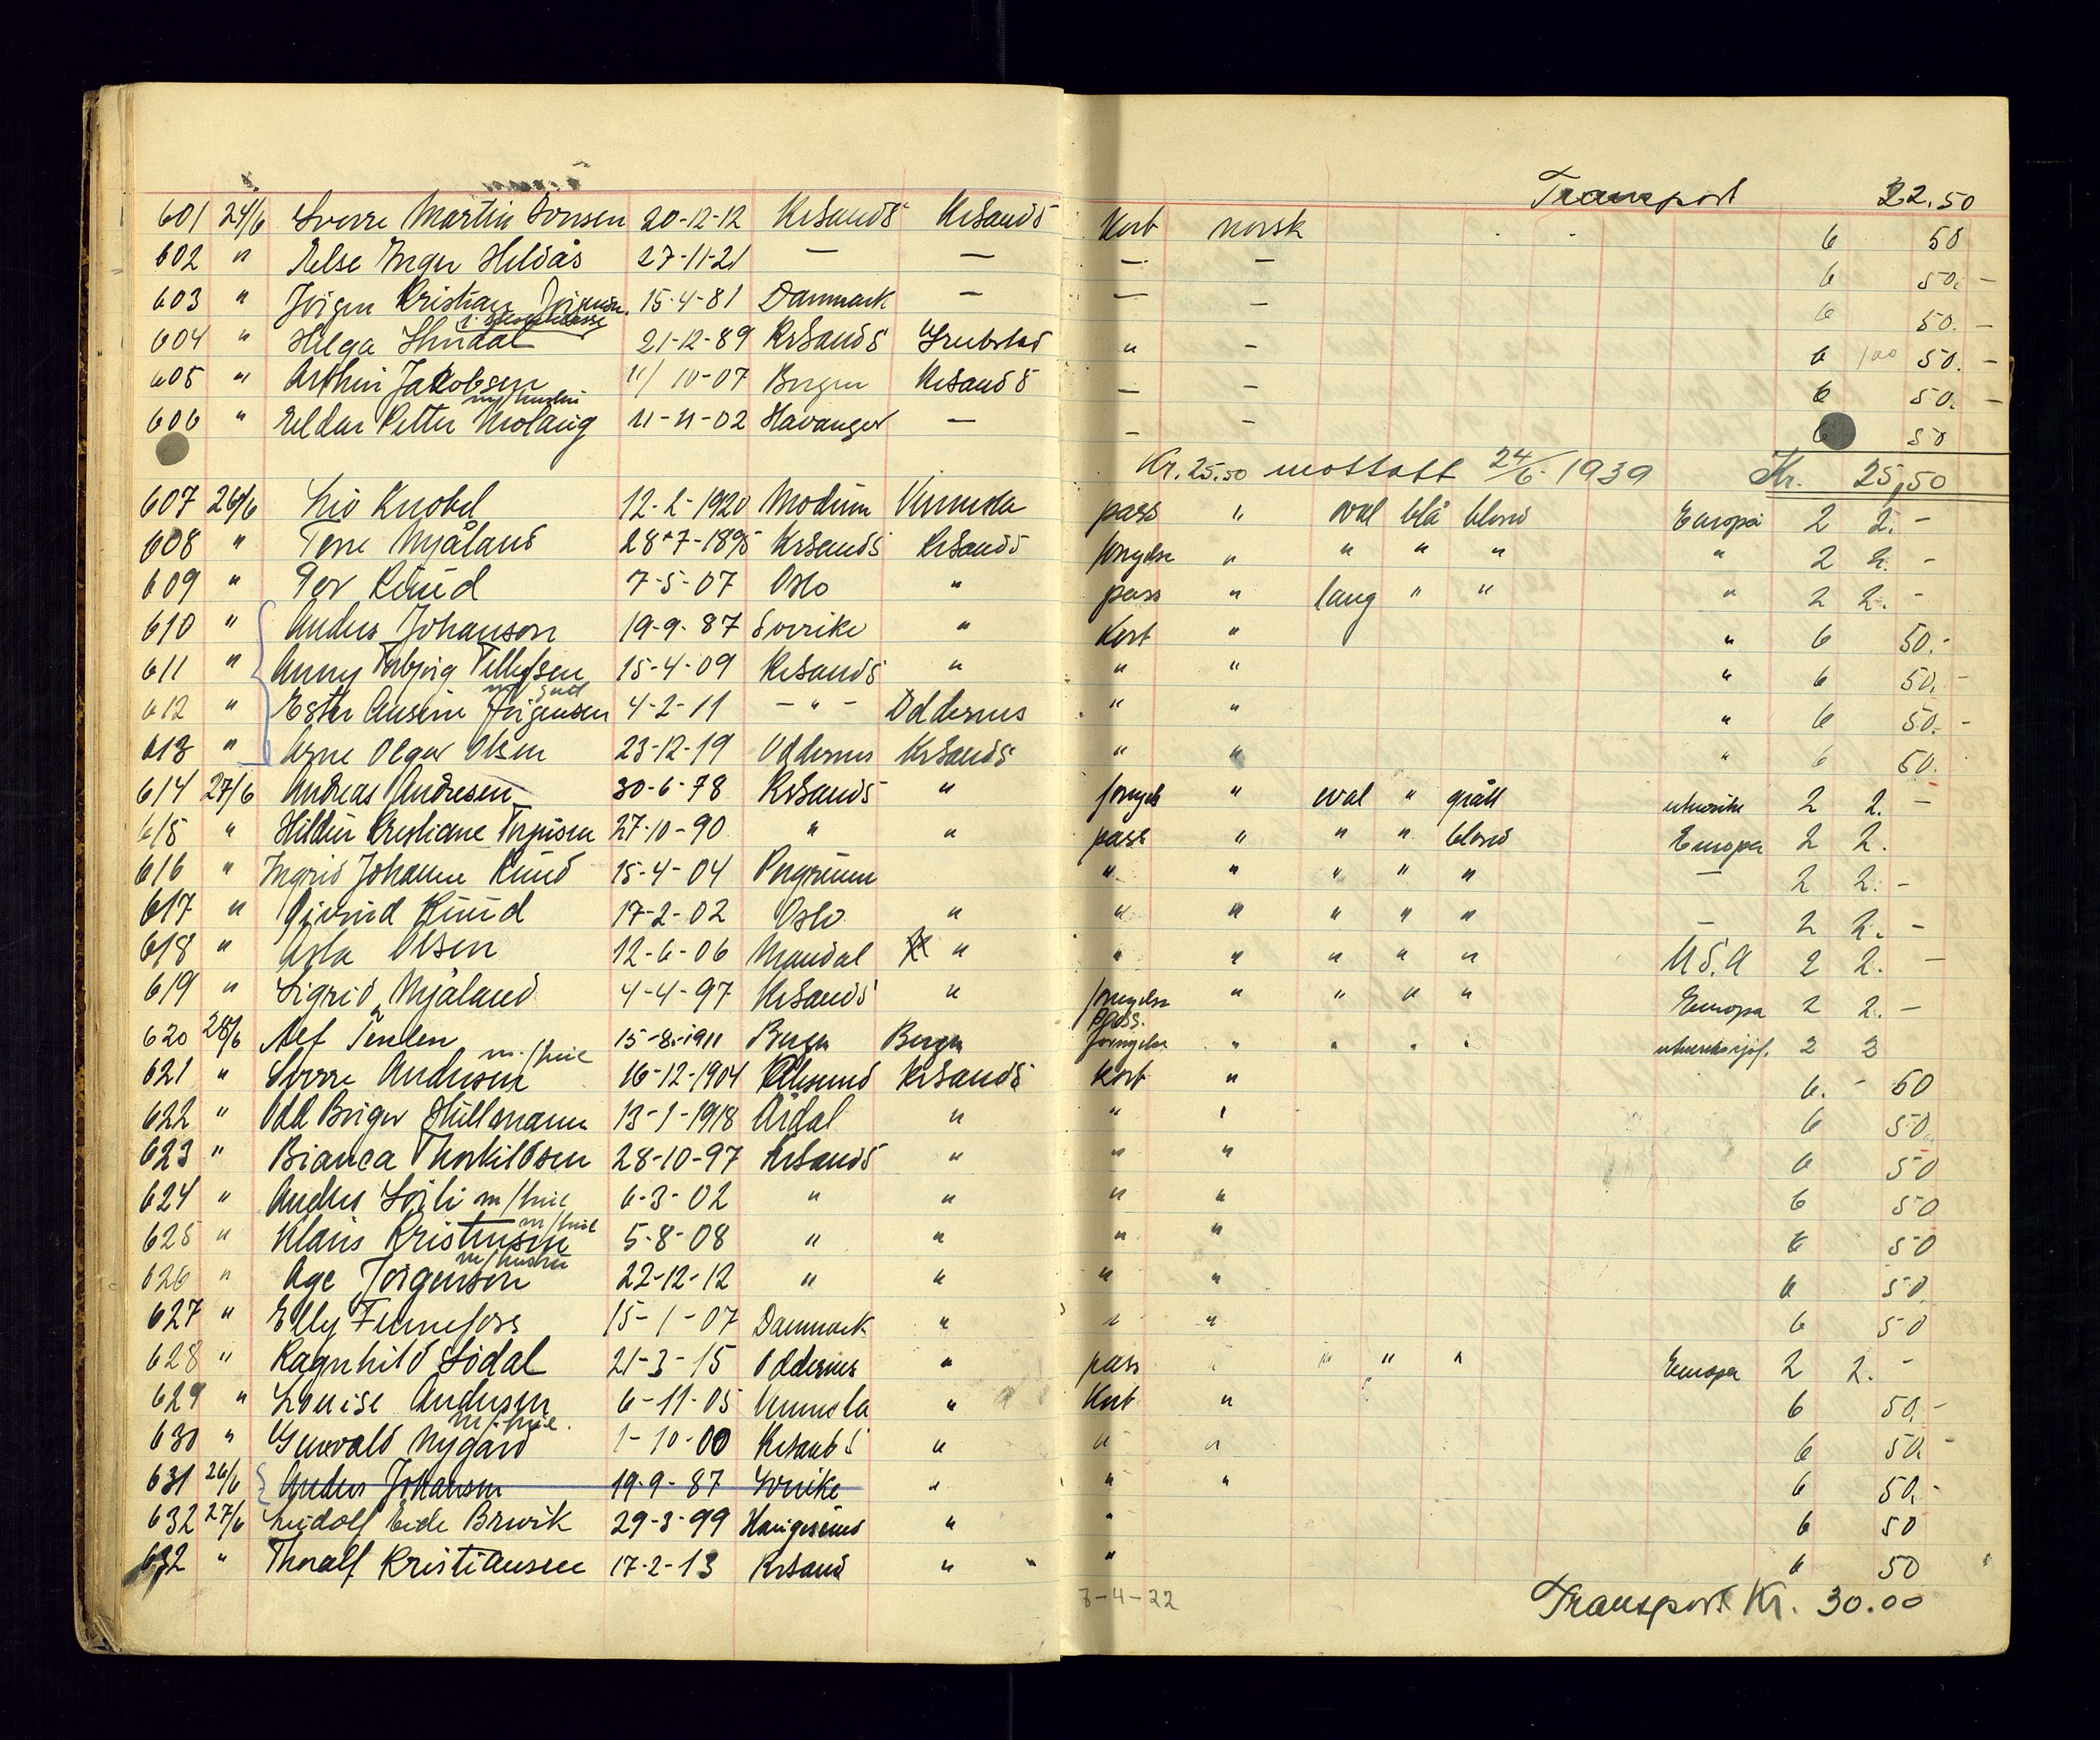 Transport 22.50
601 24/6 Sverre Martin Jonsen 20-12-12 KrSands KrSands Kort norsk 6 50
602 " Else Inger Hildås 27-11-21 — — — — 6 50. -
603 " Jörgen Kristian Jörgensen. 15-4-81 Danmark — — — 6 50. -
604 " Helga 21-12-89 KrSands Grubstad " - 6 100 50. -
605 " Arthur Jakobsen 11/10-07 Bergen KrSands — - 6 50. -
m/hustru
606 " Peter 11-11-02 — — - 6 50
Kr. 25.50 mottatt 24/6-1939 Kr. 25,50
607 26/6 Liv Knobel 12-2-1920 Modum Vennesla pass " oval blå blond Europa 2 2.-
608 " Nyåland 28-7-1895 KrSands KrSands fornyelse " " " " " 2 2. -
609 " Per Ruud 7-5-07 Oslo " pass " lang " " " 2 2. -
610 " Anders Johanson 19-9-87 Sverike " Kort " " 6 50.-
611 " Anny Torbjørg Tellefsen 15-4-09 KrSands " " " " 6 50.-
612 " Ester Jörgensen 4-2-11 - " - Oddernes " " " 6 50.-
613 " Arne Olgar Olsen 23-12-19 Oddernes KrSands " " " 6 50.
614 27/6 Andreas Andresen 30-6-78 KrSands " fornyels " oval " grått utenriks 2 2. -
615 " Kristiane 27-10-90 " " pass " " " blond Europa 2 2.
616 " Ingrid Johanne Ruud 15-4-04 " " " " " — 2 2. -
617 " Öivind Ruud 17-2-02 Oslo " " " " " " — 2 2. -
618 " Asta Olsen 12-6-06 Mandal " " " " " " U.S.A 2 2. -
619 " Sigrid Nyåland 4-4-97 KrSands " fornyelse " " " " Europa 2 2. -
pass.
620 28/6 Alf 15-8-1911 Bergen Bergen fornyelse " " " " 2 2
m/bil
621 " Sverre Andresen 16-12-1904 KrSands Kort " 6.- 50
622 " Odd Birger Hüllemann 13-1-1918 Årdal " " " 6 50
623 " Bianca Thorkildsen 28-10-97 KrSands " " " 6 50
624 " Anders m/bil 6-3-02 " " " " 6 50
m/bil
625 " Klaus Kristensen 5-8-08 " " " " 6 50
m/hustru
626 " Åge Jörgenson 22-12-12 " " " " 6 50
627 " Elly Finnefoss 15-1-07 Danmark " " " 6 50
628 " Ragnhild Sødal 21-3-15 Oddernes " pass " " " " Europa 2 2. -
629 " Louise Andersen 6-11-05 Vennesla " Kort " 6 50.-
m/bil.
630 " Gunvald Nygård 1-10-00 KrSands " " " 6 50.-
631 26/6 Anders Johansen 19-9-87 Sverike " " " 6 50.-
632 27/6 Ludolf Eide Brevik 29-3-99 Haugesund " " 6 50
632 " Thoralf Kristiansen 17-2-13 KrSand " " 6 50
3-4-22 Transport Kr. 30.00